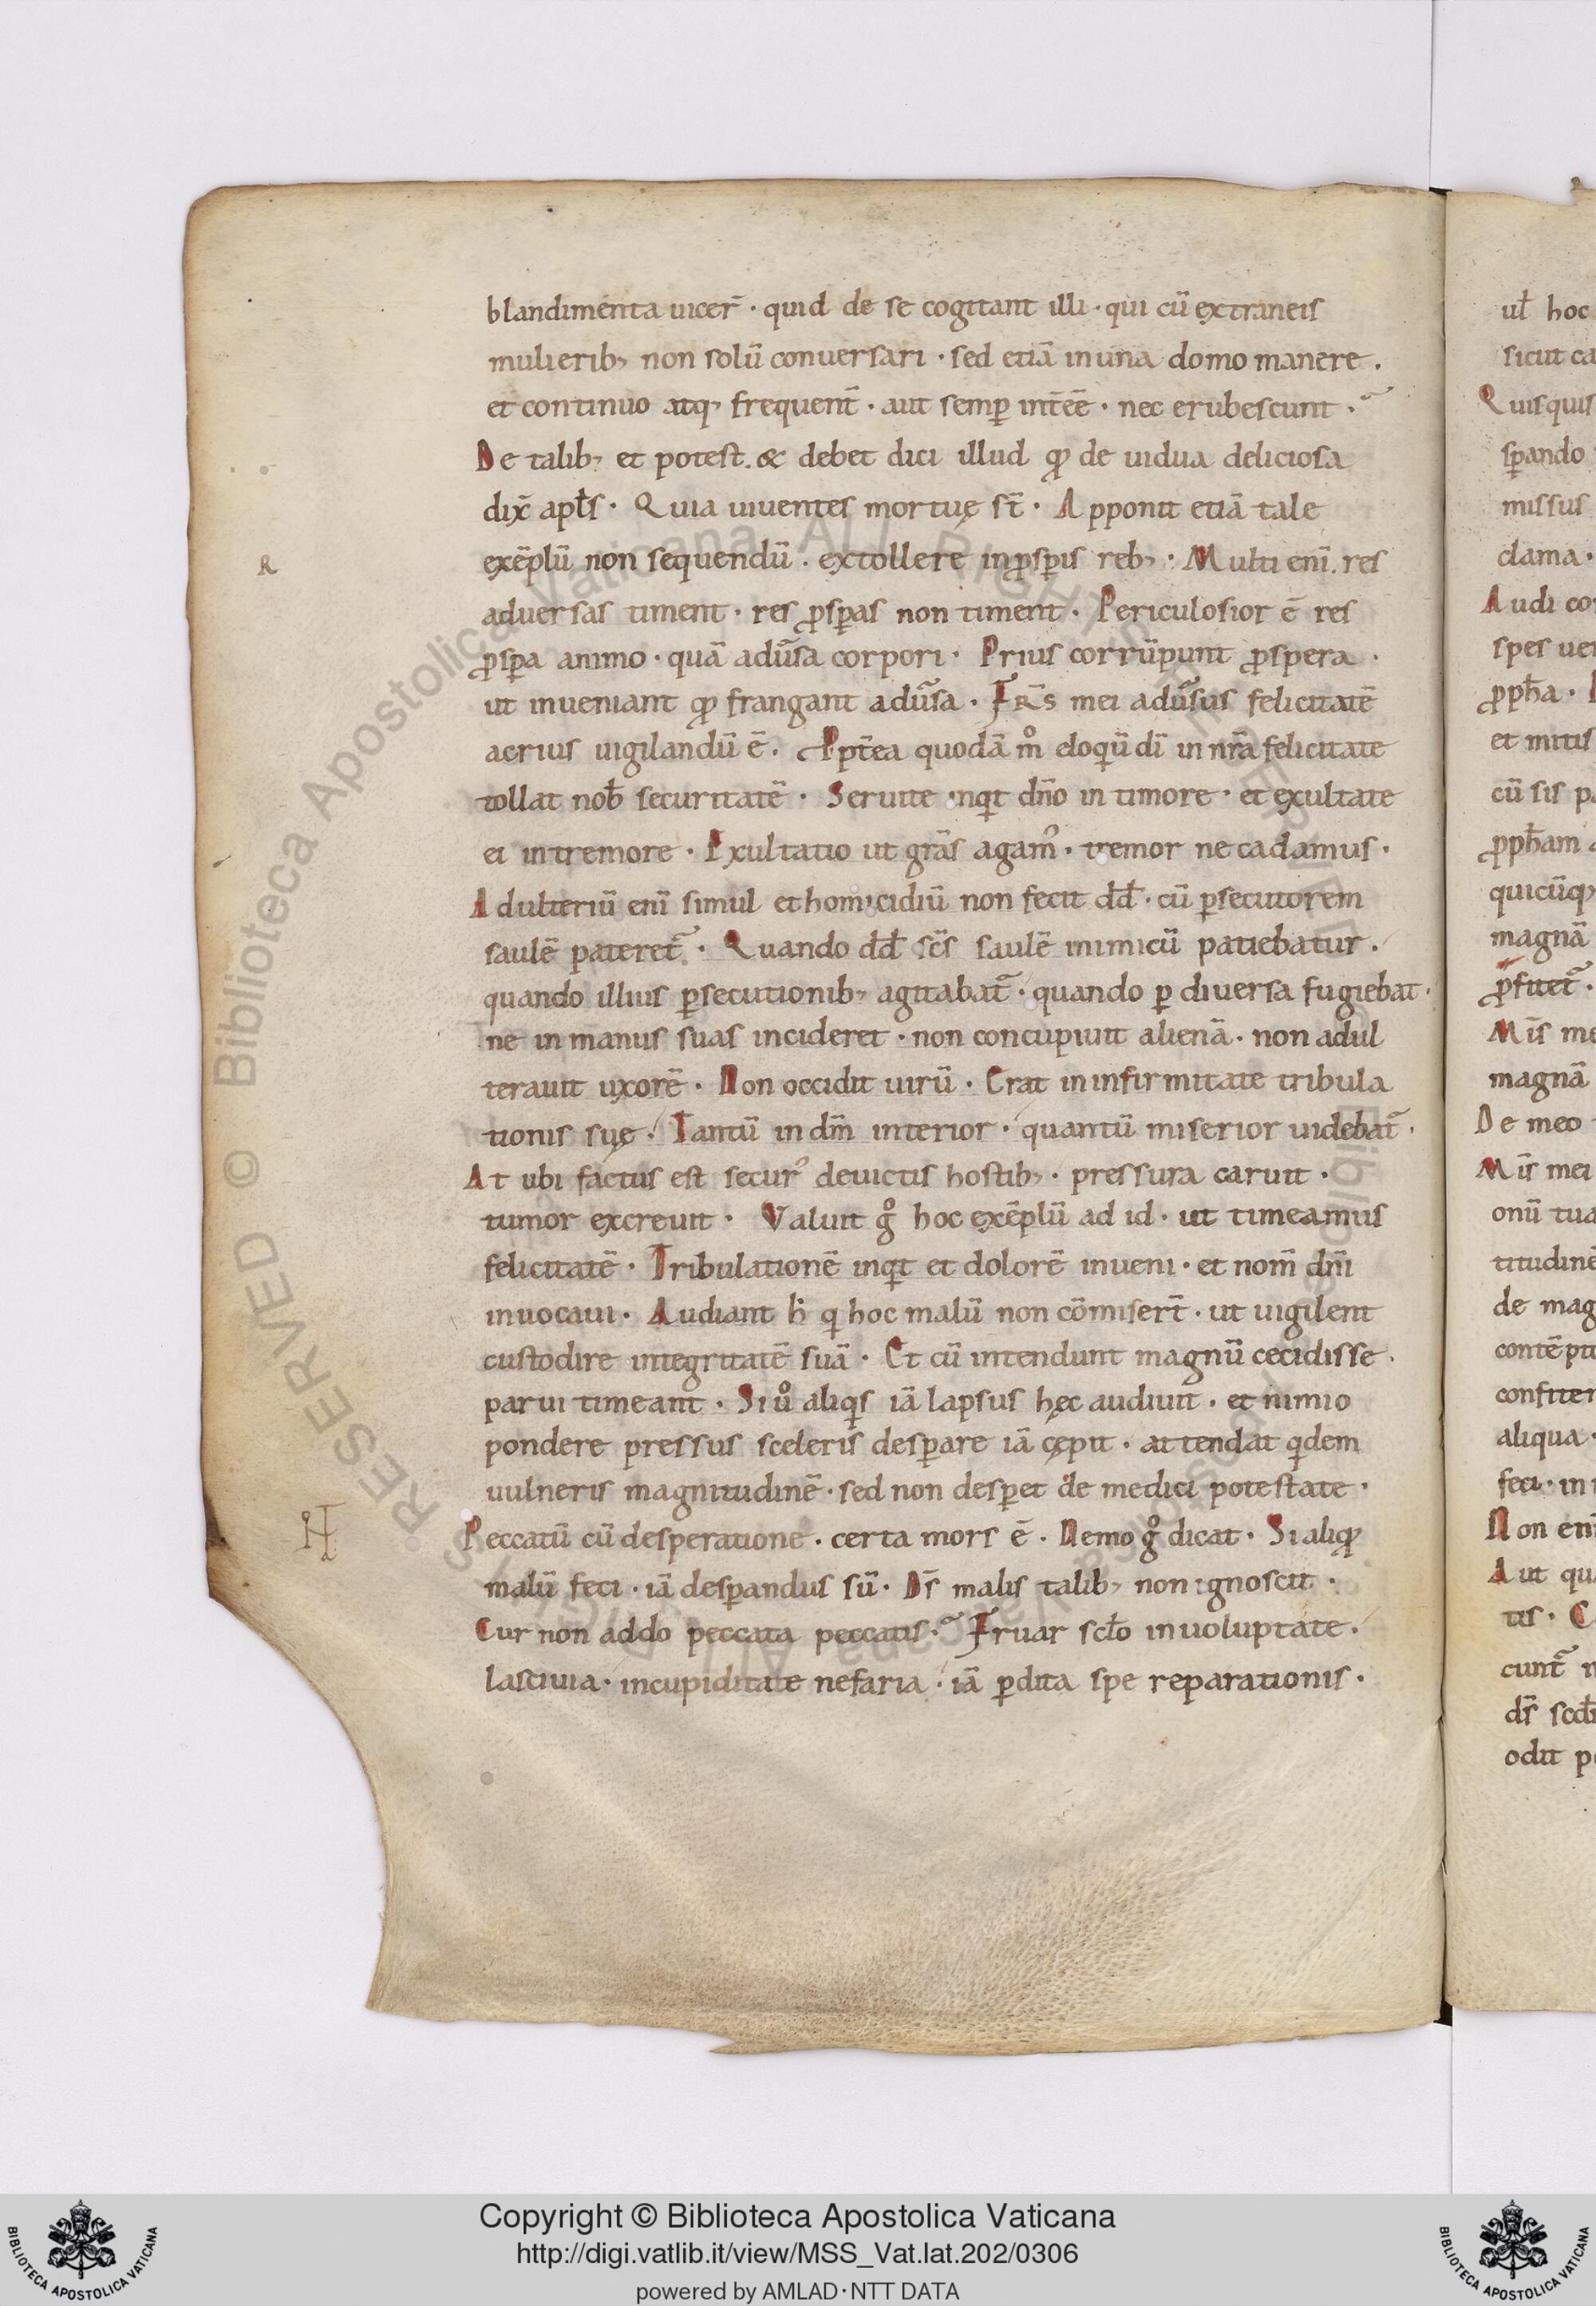 blandimenta uicer̄ · quid de se cogitant illi · qui cū extraneis
mulierib; non solū conuersari · sed etiā in una domo manere .
et continuo atq; frequent̄ · aut semp̄ int̄ēē · nec erubescunt ·
De talib; et potest . & debet dici illud qđ de uidua deliciosa
dix̄ apl̄s · Quia uiuentes mortuę st̄ · Apponit etiā tale
exēplū non sequendū . extollere in ꝓsꝑis reb; · Multi enī . res
aduersas timent · res ꝓsꝑas non timent · Periculosior ē res
ꝓsꝑa animo · quā adūsa corpori · Prius corrūpunt ꝓspera ·
ut inueniant qđ frangant adūsa · FR̄S mei adūsus felicitatē
acrius uigilandū ē . Ppt̄ea quodā m̊ eloqū dī in nr̄a felicitate
tollat nob̄ securitatē · Seruite inqt dn̄o in timore · et exultate
ei in tremore · Exultatio ut grās agam᾽ · tremor ne cadamus ·
Adulteriū enī simul et homicidiū non fecit dd̄ · cū ꝑsecutorem
saulē pateret̄ · Quando dd̄ sc̄s saulē inimicū patiebatur .
quando illius ꝑsecutionib; agitabat̄ · quando ꝑ diuersa fugiebat ·
ne in manus suas incideret · non concupiuit alienā · non adul
terauit uxorē · Non occidit uirū · Erat in infirmitate tribula
tionis suę · Tantū in dm̄ interior · quantū miserior uidebat̄ ·
At ubi factus est secur᾽ deuictis hostib; · pressura caruit ·
tumor excreuit · Valuit g̊ hoc exēplū ad id · ut timeamus
felicitatē · Tribulationē inqt et dolorē inueni · et nom̄ dn̄i
inuocaui · Audiant h̄ q hoc malū non cōmisert̄ · ut uigilent
custodire integritatē suā · Et cū intendunt magnū cecidisse ·
parui timeant · Si ů aliqs iā lapsus hęc audiuit · et nimio
pondere pressus sceleris desꝑare iā cępit · attendat qdem
uulneris magnitudinē · sed non desꝑet de medici potestate ·
Peccatū cū desperatione · certa mors ē . Nemo g̊ dicat · Si aliqđ
malū feci · iā desꝑandus sū · Ds̄ malis talib; non ignoscit ·
Cur non addo peccata peccatis · Fruar scl̄o in uoluptate ·
lasciuia · in cupiditate nefaria · iā ꝑdita spe reparationis ·
R
ul̄ hoc
Quisquis
sꝑando
missus
clama ·
et mitis
cū sis
magnā
magnā
De meo
Mīs mei
de mag
aliqua ·
feci · in
Non enī
Aut
Copyright © Biblioteca Apostolica Vaticana
http://digi.vatlib.it/view/MSS_Vat.lat.202/0306
powered by AMLAD·NTT DATA
BIBLIOTECA APOSTOLICA VATICANA
BIBLIOTECA APOSTOLICA VATICANA